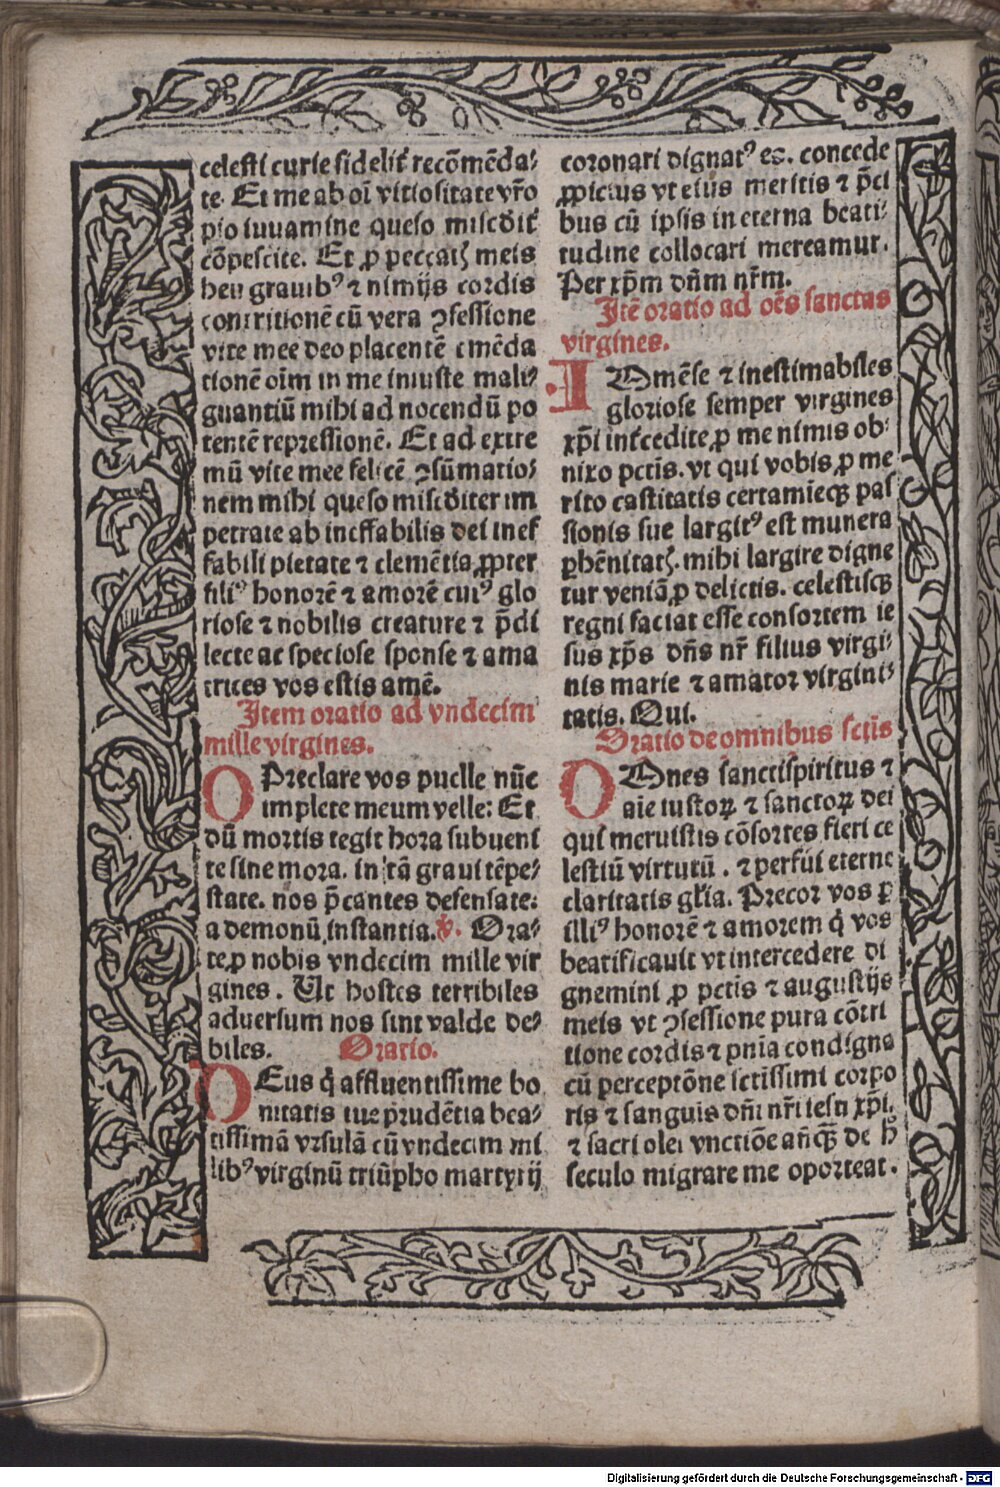 celesti curie fidelit᷑ recōmēda⸗
te. Et me ab oī vitiositate vr̄o
pio iuuamine queso misᷣdit᷑
cōpescite. Et ꝓ peccatꝭ meis
heu grauibꝰ ⁊ nimijs cordis
contritionē cū vera ꝯfessione
vite mee deo placentē emēda
tionē oīm in me iniuste mali⸗
guantiū mihi ad nocendū po
tentē repressionē. Et ad extre
mū vite mee felicē ꝯsūmatio⸗
nem mihi queso misᷣditer im
petrate ab ineffabilis dei inef
fabili pietate ⁊ clemētia ꝓpter
filiꝰ honorē ⁊ amorē cuiꝰ glo
riose ⁊ nobilis creature ⁊ p̄di
lecte ac speciose sponse ⁊ ama
trices vos estis amē.
Item oratio ad vndecim
mille virgines.
O Preclare vos puelle nūc
implete meum velle: Et
dū mortis tegit hora subueni
te sine mora. in tā graui tēpe⸗
state. nos p̄cantes defensate:
a demonū instantia. ℣. Ora⸗
te ꝓ nobis vndecim mille vir
gines. Ut hostes terribiles
aduersum nos sint valde de⸗
biles. Oratio.
DEus q̇ affluentissime bo
nitatis tue prudētia bea⸗
tissimā vrsulā cū vndecim mi
libꝰ virginū triūpho martyrij
coronari dignatꝰ es. concede
ꝓpicius vt eius meritis ⁊ p̄ci
bus cū ipsis in eterna beati⸗
tudine collocari mereamur.
Per xp̄m dn̄m nr̄m.
Itē oratio ad oēs sanctas
virgines.
IOmēse ⁊ inestimabiles
gloriose semper virgines
xp̄i int᷑cedite ꝓ me nimis ob⸗
nixo pctīs. vt qui vobis ꝓ me
rito castitatis certamīecꝫ pas
sionis sue largitꝰ est munera
ꝑhēnitatꝭ. mihi largire digne
tur veniā ꝓ delictis. celestiscꝫ
regni faciat esse consortem ie
sus xp̄s dn̄s nr̄ filius virgi⸗
nis marie ⁊ amator virgini⸗
tatis. Qui.
Oratio de omnibus sctīs
OOnes sancti spiritus ⁊
aīe iustoꝝ ⁊ sanctoꝝ dei
qui meruistis cōsortes fieri ce
lestiū virtutū. ⁊ perfui eterne
claritatis gl̄ia. Precor vos ꝑ
illiꝰ honorē ⁊ amorem q̇ vos
beatificauit vt intercedere di
gnemini ꝓ pctīs ⁊ augustijs
meis vt ꝯfessione pura cōtri
tione cordis ⁊ pnīa condigna
cū perceptōne sctīssimi corpo
ris ⁊ sanguis dn̄i nr̄i iesu xp̄i.
⁊ sacri olei vnctiōe an̄cꝫ de h̄
seculo migrare me oporteat.
Digitalisierung gefördert durch die Deutsche Forschungsgemeinschaft - DFG